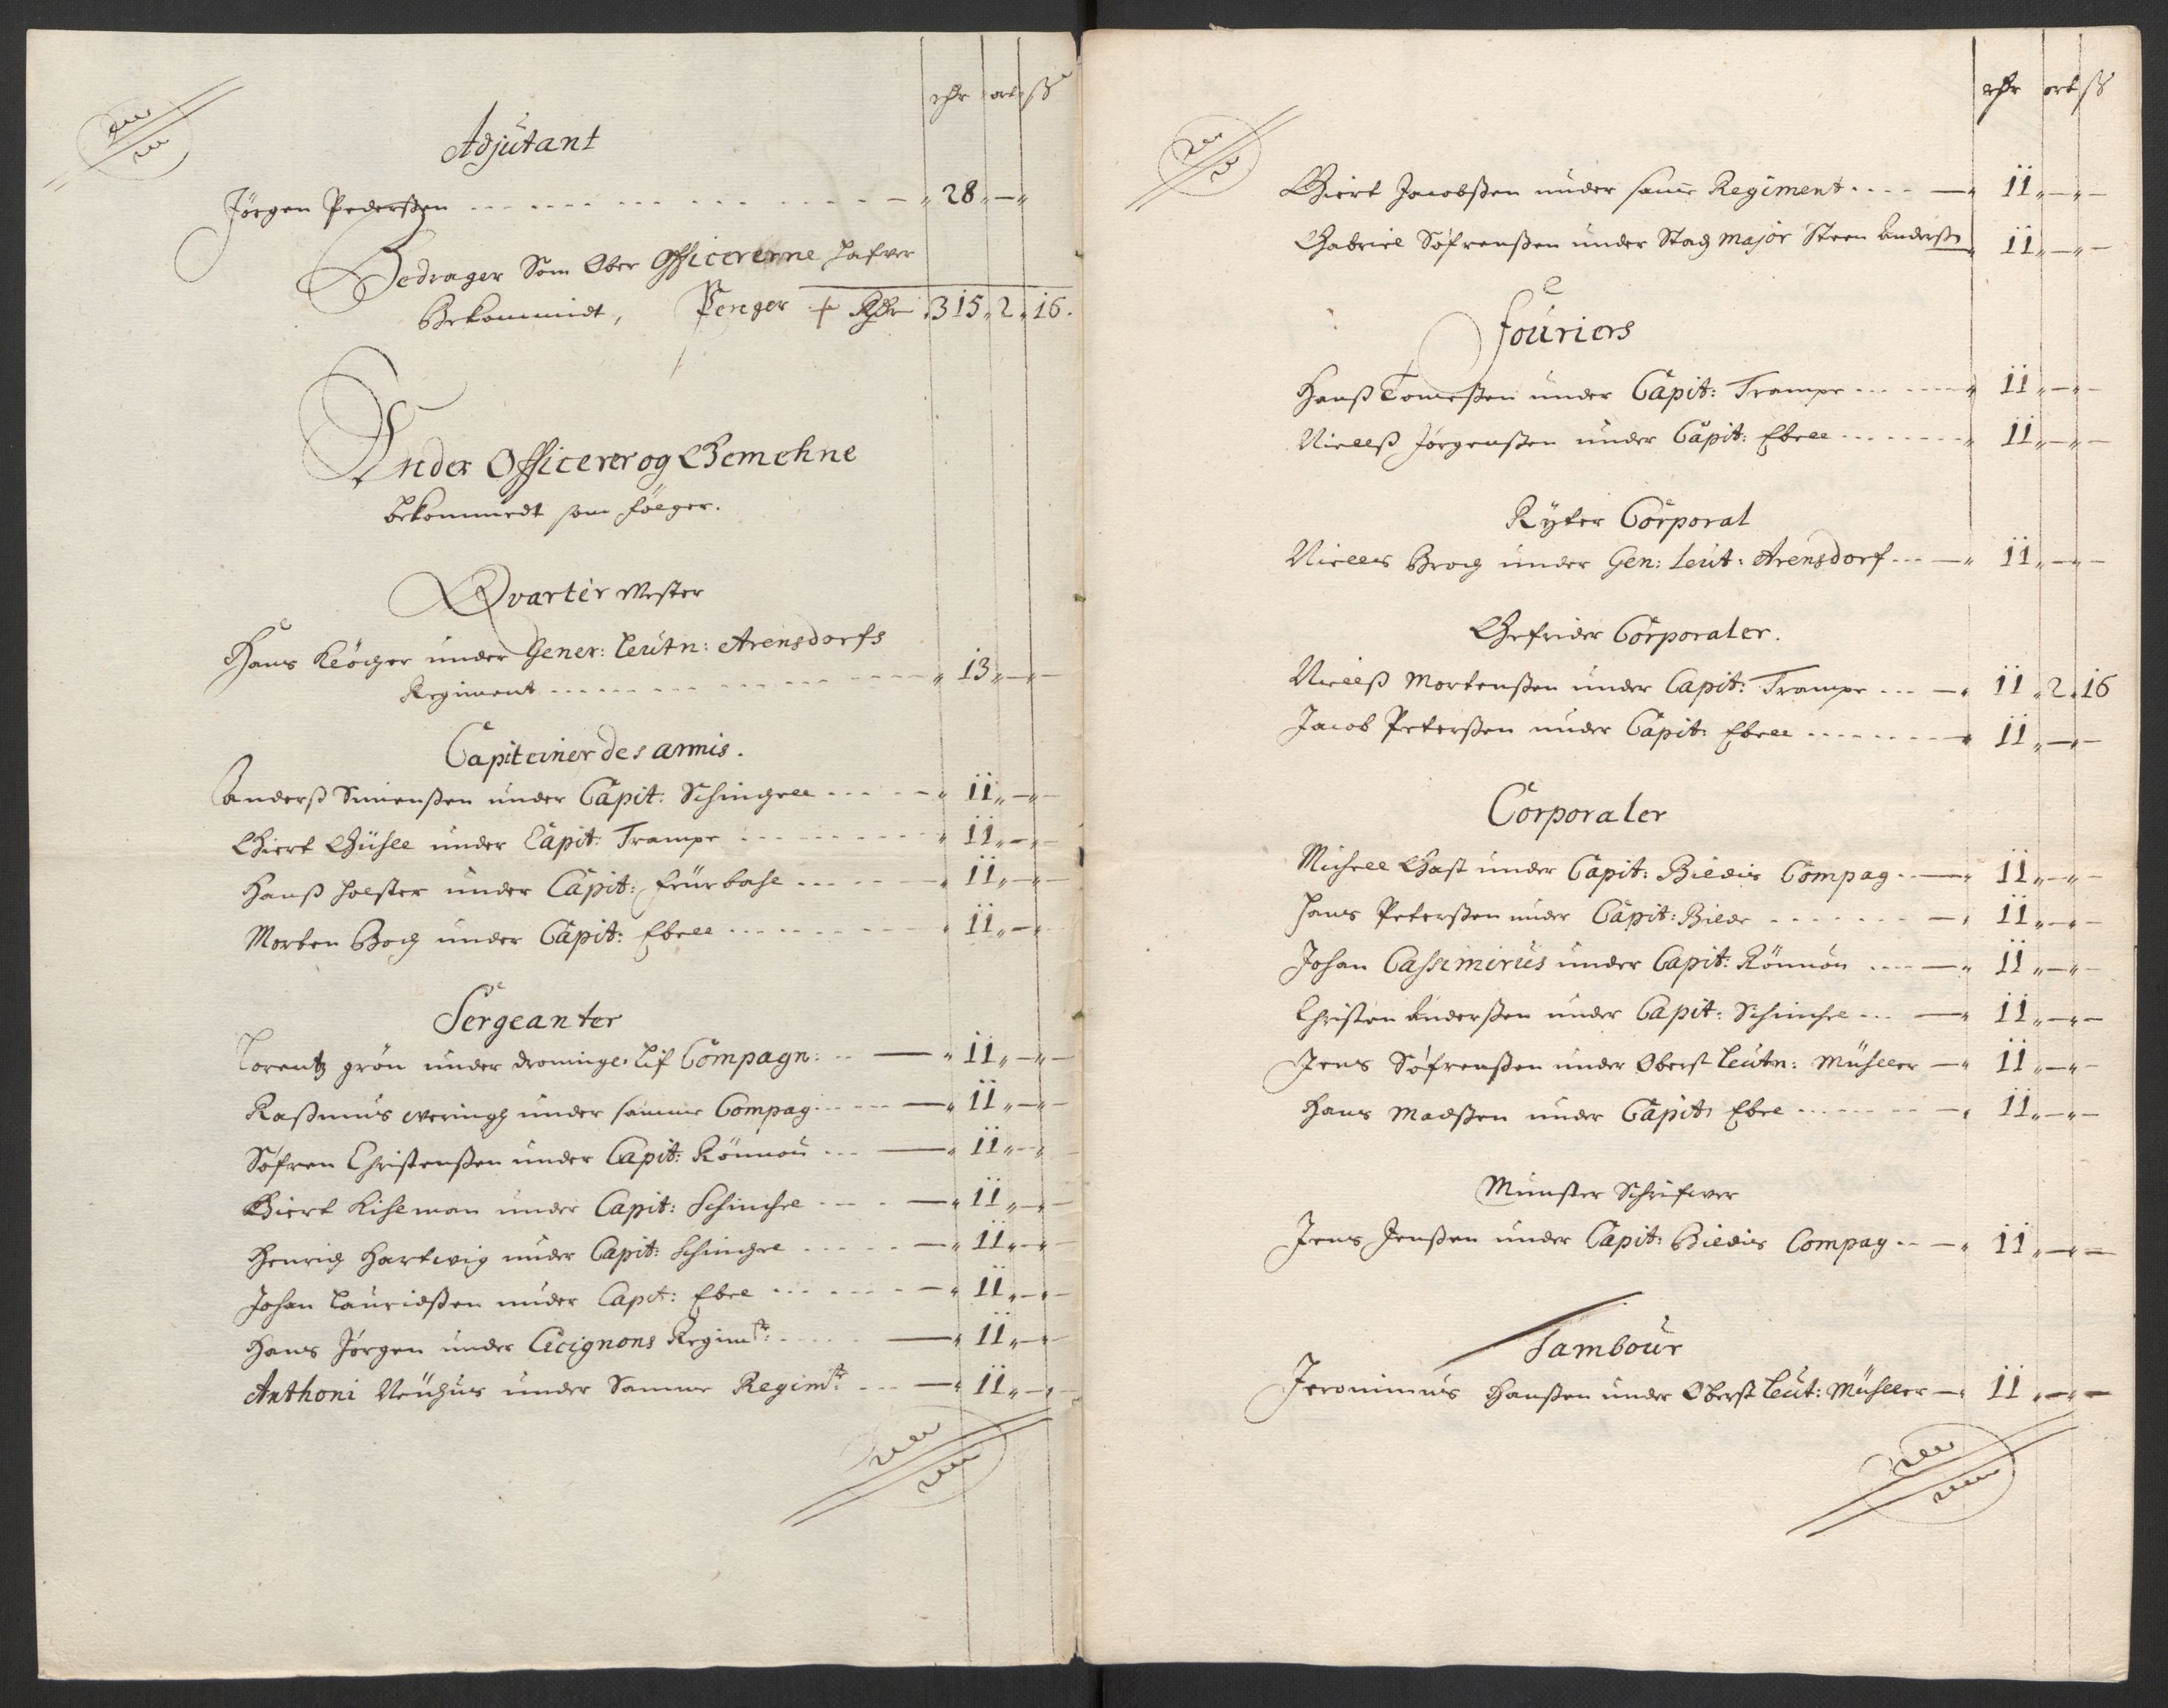 rdr ort ß
Adjutant
Jörgen Pederssen - 28 - -
Bedrager Som Ober Officererne hafver
Bekommidt, Penger Rdr 315. 2. 16.
Under Officerer og Gemehne
bekommedt som følger.
Qvarteer Mester
Hans Klöcher under Gener: Leutn: Arensdorfs
Regiment - 13 - -
Capiteiner des armis.
Anderß Simenßen under Capit: Schinchell - 11 - -
Giert under Capit: Trampe - 11 - -
Hanß Holster under Capit: - 11 - -
Morten Boch under Capit: Ebell - 11 - -
Sergeanter
Lorentz grön under Lif Compagn: - 11 - -
Raßmus under samme Compag - 11 - -
Söfren Christenßen under Capit: Rönnou - 11 - -
Giert Kihlman under Capit: Schinchel - 11 - -
Henrich Hartwig under Capit: Schinchel - 11 - -
Johan Lauridßen under Capit: Ebel - 11 - -
Hans Jörgen under Cicignons Regimt: - 11 - -
Anthoni under Samme Regimt: - 11 - -
rdr ort ß
Giert Jacobßen under samme Regiment - 11 - -
Gabriel Söfrenßen under Major Steen Anderß - 11 - -
fouriers
Hanß Tomeßen under Capit: Trampe - 11 - -
Nielß Jörgenßen under Capit: Ebell - 11 - -
Ryter Corporal
Niells Broch under Gen: Leut: Arensdorf - 11 - -
Gefrider Corporaler.
Niellß Mortenßen under Capit: Trampe - 11. 2. 16
Jacob Peterßen under Capit: Ebell - 11 - -
Corporaler
Michell Gast under Capit: Bieldis Compag - 11 - -
Hans Peterßen under Capit: Bilde - 11 - -
Johan Cassimirus under Capit: Rönnou - 11 - -
Christen Anderßen under Capit: Schinchel - 11 - -
Jens Söfrenßen under Oberst Leutn: Mühller - 11 - -
Hans Madßen under Capit: Ebel - 11 - -
Munster Schrifwer
Jens Jenßen under Capit: Bieldis Compag - 11 - -
Tambour
Jeronimus Hanßen under Oberst Leut: Mühller - 11 - -